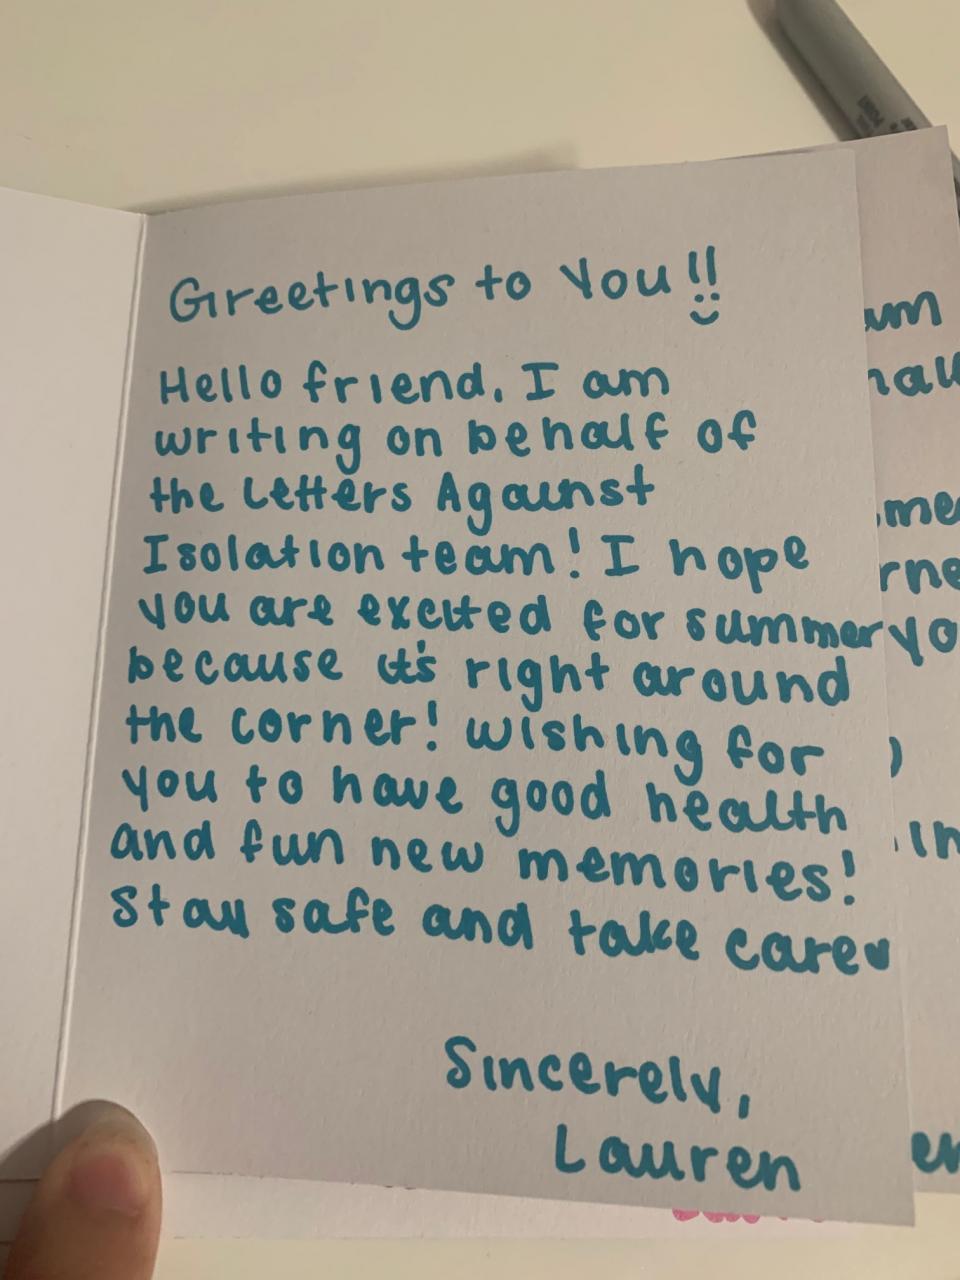 Greetings to You!!
Hello friend, I am
writing on behalf of
the Letters Against
Isolation team! I hope
you are excited for summer
because it's right around
the corner! wishing for
you to have good health
and fun new memories!
Stay safe and take care♥
Sincerely,
Lauren